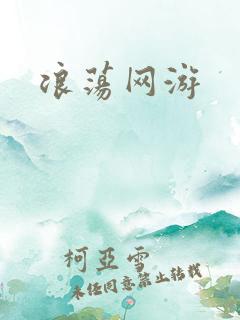 浪荡网游
柯亞雪
未经同意禁止转载